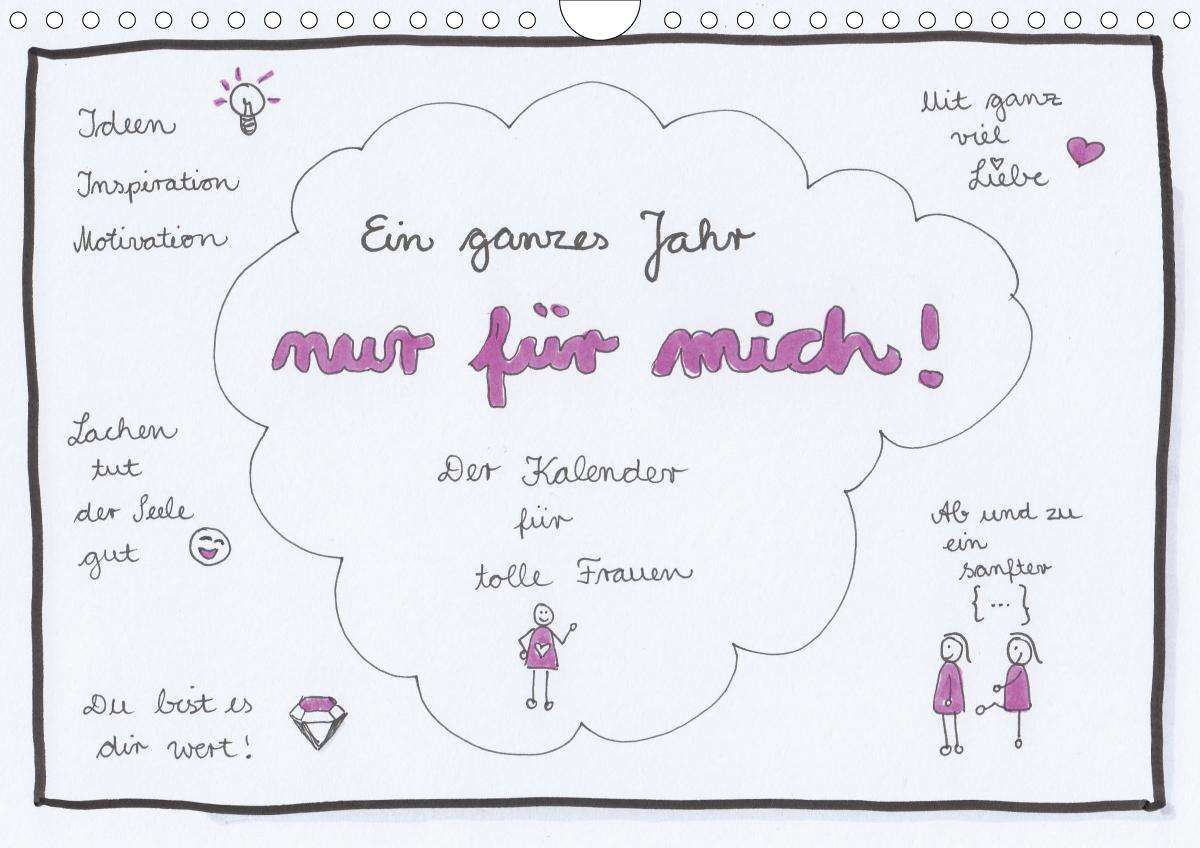 Ideen
Inspiration
Motivation
Mit ganz
viel
Liebe
Ein ganzes Jahr
nur für mich!
Der Kalender
für
tolle Frauen
Lachen
tut
der Seele
gut
Ab und zu
ein
sanfter
{...}
Du bist es
dir wert!